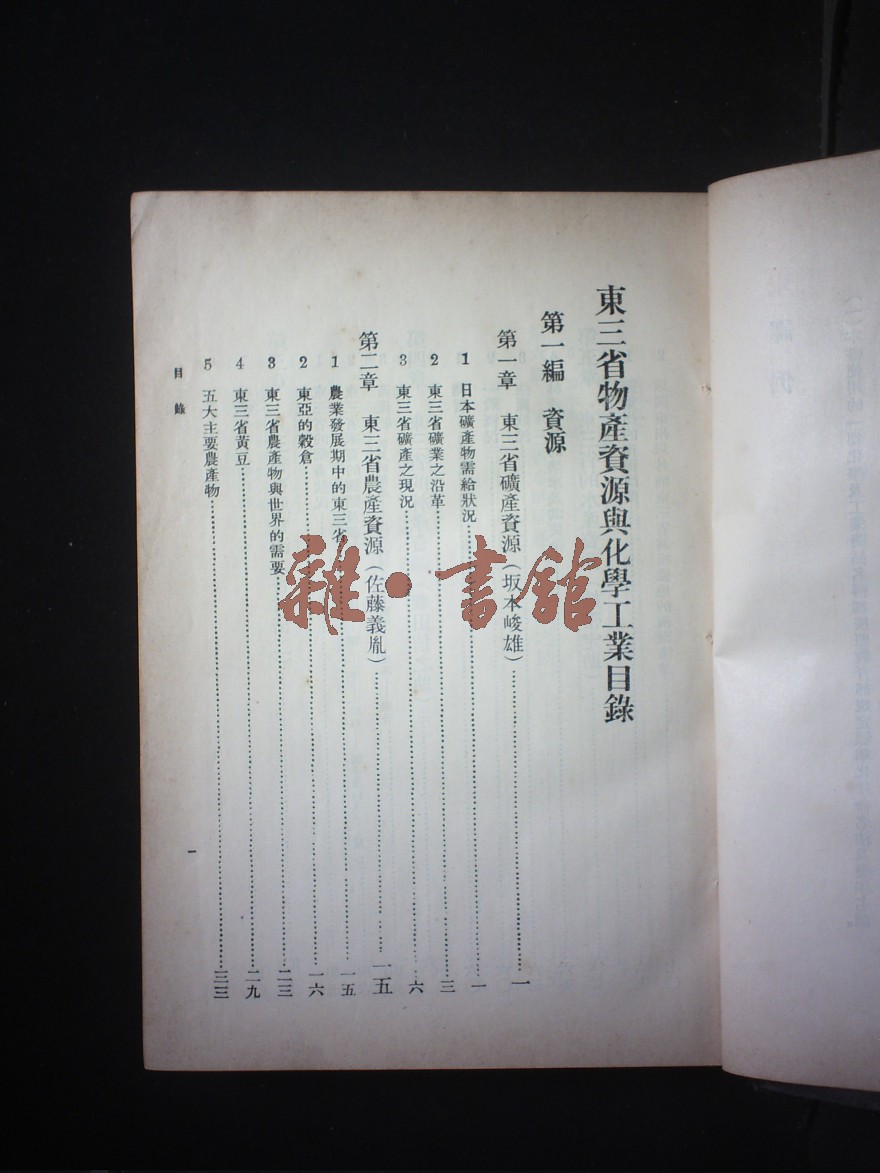 東三省物產資源與化學工業目錄
第一編 資源
第一章 東三省礦產資源(坂本峻雄)……一
1 日本礦產物需給狀況……一
2 東三省礦業之沿革……三
3 東三省礦產之現況……六
第二章 東三省農產資源(佐藤義胤)……一五
1 農業發展期中的東三省……一五
2 東亞的穀倉……一六
3 東三省農產物與世界的需要……二三
4 東三省黃豆……二九
5 五大主要農產物……三三
目錄
一
雜·書館